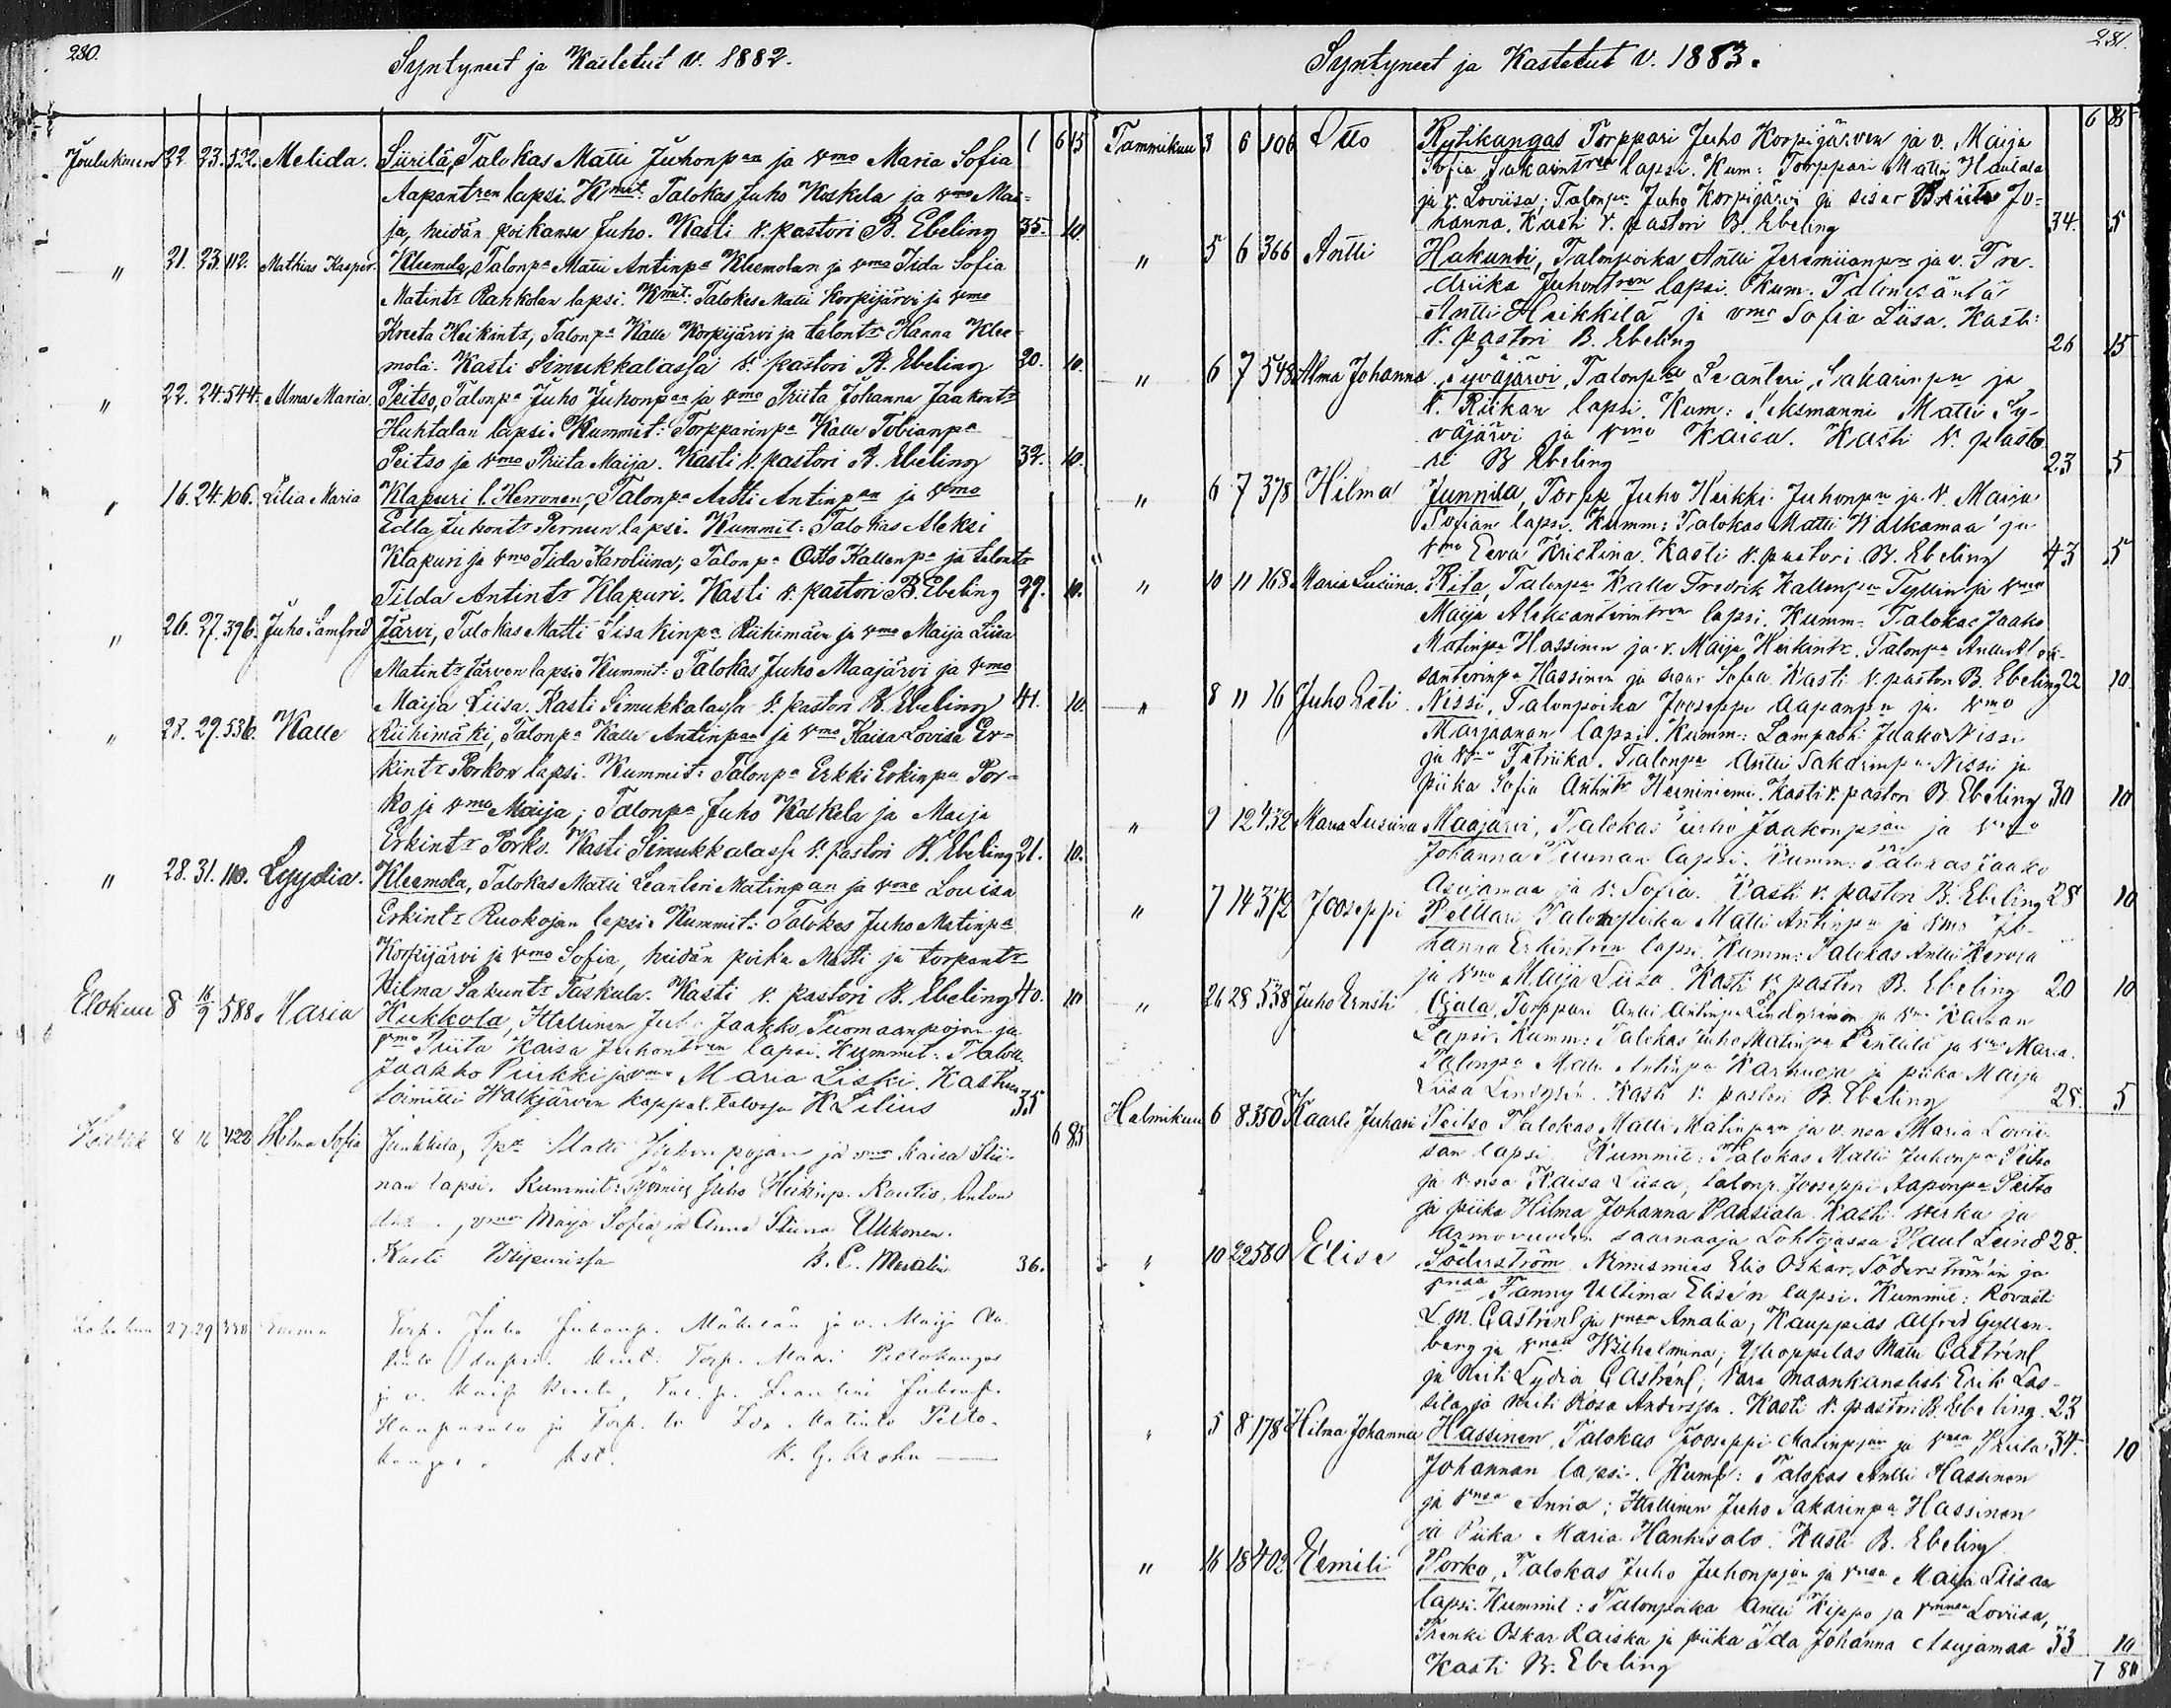 280.
Syntyneet ja Kastetut v. 1882.
Joulukuun 22. 23. 522. Melida. Siirilä, Talokas Matti Juhonpan ja vmo Maria Sofia 1 6 15
Aapontren lapsi. Kmit. Talokas Juho Koskela ja vmo Mai-
ja, heidän poikansa Juho. Kasti v. pastori B. Ebeling 35. 10.
" 21. 23. 112. Mathias Kasper. Kleemola, Talonpa Matti Antinpa Kleemolan ja vmo Iida Sofia
Matintr Rahkolan lapsi. Kmit: Talokas Matti Korpijärvi ja vmo
Kreeta Heikintr, Talonpa Kalle Korpijärvi ja talontr Hanna Klee-
mola. Kasti Simukkalassa v. pastori B. Ebeling 20. 10.
" 22. 24. 544. Alma Maria. Peitso, Talonpa Juho Juhonpan ja vmo Priita Johanna Jaakontr
Huhtalan lapsi. Kummit: Torpparinpa Kalle Tobianpa
Peitso ja vmo Priita Maija. Kasti v. pastori B. Ebeling 32. 10.
" 16. 24. 106. Lilia Maria Klapuri l. Herronen, Talonpa Antti Antinpan ja vmo
Edla Juhontr Pernun lapsi. Kummit: Talokas Aleksi
Klapuri ja vmo Iida Karoliina; Talonpa Otto Kallenpa ja talontr
Tilda Antintr Klapuri. Kasti v. pastori B. Ebeling 29. 10.
" 26. 27. 396. Juho Samfred Järvi, Talokas Matti Iisakinpa Riihimäen ja vmo Maija Liisa
Matintr Järven lapsi. Kummit: Talokas Juho Maajärvi ja vmo
Maija Liisa. Kasti Simukkalassa v. pastori B. Ebeling 41. 10.
" 28. 29. 536. Kalle Riihimäki, Talonpa Kalle Antinpan ja vmo Kaisa Lovisa Er-
kintr Porkon lapsi. Kummit: Talonpa Erkki Erkinpa Por-
ko ja vmo Maija; Talonpa Juho Koskela ja Maija
Erkintr Porko. Kasti Simukkalassa v. pastori B. Ebeling 21. 10.
" 28. 31. 110. Lyydia. Kleemola, Talokas Matti Leanteri Matinpan ja vmo Lovisa
Erkintr Ruokojan lapsi. Kummit: Talokas Juho Matinpa
Korpijärvi ja vmo Sofia, heidän poika Matti ja torpantr
Hilma Sakuntr Taskula. Kasti v. pastori B. Ebeling 40. 10
Elokuu 8 16/9 588. Maria Hukkola, Itellinen Juho Jaakko Tuomaanpojan ja
vmo Priita Kaisa Juhontren lapsi. Kummit: Talok.
Jaakko Pirkki ja vmo Maria Liski. Kasteen
toimitti Walkjärven kappal. talossa K Lilius 35
8 422 Hilma Sofia Junkkila, Tpa Matti Juhon pojan ja vmo Kaisa Stii- 6 85
nan lapsi. Kummit: Työmies Juho Heikinp. Rautio, Anton
vmo Maija Sofia ja Anna Stiina Ukkonen.
Kasti Wiipurissa B. C. 36.
Lokakuu 27 29 Emma Torp. Juho Juhonp. Mäkelän ja v. Maija
lapsi. Torp. Matti Peltokangas
ja v. Leanteri Juhonp.
ja Torp. tr Ida Matintr Pelto-
kangas. Kst. K. G. Krohn
281.
Syntyneet ja Kastetut v. 1883.
6 85
Tammikuu 3 6 106 Otto Rytikangas Torppari Juho Korpijärven ja v. Maija
Sofia lapsi. Kum: Torppari Matti Hautala
ja v. Loviisa; Talonpa Juho Korpijärvi ja sisar Briita Jo-
hanna. Kasti v. pastori B. Ebeling 34. 5
" 5 6 366 Antti Hakunti, Talonpoika Antti Jeremiianpan ja v. Fre-
driika Juhontren lapsi. Kum. Talonisäntä
Antti Heikkilä ja vmo Sofia Liisa. Kasti
v. pastori B. Ebeling 26 15
" 6 7 548 Alma Johanna Syväjärvi, Talonpan Leanteri Sakarinpn ja
v. Riikan lapsi. Kum: Seksmanni Matti Sy-
väjärvi ja vmo Kaisa. Kasti v. pasto-
ri B Ebeling 23 5
" 6 7 378 Hilma Junnila, Torpp Juho Heikki Juhonpn ja v. Maija
Sofian lapsi. Kumm: Talokas Matti Walkamaa ja
vmo Eeva Kristina. Kasti v. pastori B. Ebeling 43 5
" 10 11 168 Maria Lusiina. Rita, Talonpa Kalle Fredrik Kallenpan Tyllin ja vmo
Maija Aleksanterintren lapsi. Kumm: Talokas Jaako
Matinpa Hassinen ja v. Maija Heikintr. Talonpa Antti Alek-
santerinpa Hassinen ja sisar Sofia. Kasti v. pastori B. Ebeling 22 10.
" 8 11 16 Juho Eeti Nissi, Talonpoika Jooseppi Aapanpn ja vmo
Marjaanan lapsi. Kumm: Lampuoti Jaako Nissi
ja vmo Fetriika. Talonpa Antti Sakarinpa Nissi ja
piika Sofia Antintr Heininiemi. Kasti v. pastori B. Ebeling 30 10
" 9 12 432 Maria Lusiina Maajärvi, Talokas Juho Jaakonpjan ja vmo
Johanna lapsi. Kumm: Talokas Jaako
Asujamaa ja v. Sofia. Kasti v. pastori B. Ebeling 28 10
" 7 14 372 Jooseppi Pelttari Talonpoika Matti Antinpn ja vmo Jo-
hanna Erkintren lapsi. Kumm: Talokas Antti
ja vmo Maija Liisa. Kasti v. pastori B. Ebeling 20 10
" 26 28 558 Juho Ernsti Ojala, Torppari Antti Antinpa Lindgrénin ja vmo Kaisan
Lapsi. Kumm: Talokas Juho Matinpa Penttilä ja vmo Maria.
Talonpa Matti Antinpa Karhuoja ja piika Maija
Liisa Lindgrén. Kasti v. pastori B. Ebeling 28. 5
Helmikuu 6 8 350 Kaarle Juhani Peitso Talokas Matti Matinpan ja v.nsa Maria Lovii-
san lapsi. Kummit: Talokas Matti Juhonpa Peitso
ja v.nsa Kaisa Liisa, talonp. Jooseppi Aaponpa Peitso
ja piika Hilma Johanna Passiala. Kasti virka ja
armovuoden saarnaaja Lohtajassa Paul Leind 28.
" 10 22 580 Elise Söderström Nimismies Elis Oskar Söderström'in ja
vnsa Fanny Ultima Elisé'n lapsi. Kummit: Rovasti
L. M. Castrén ja vnsa Amalia; Kauppias Alfred Gyllen-
berg ja vnsa Wilhelmina; Ylioppilas Matti Castrén
ja Neiti Lydia Castrén; Vara maankanslisti Erik Las-
sila ja neiti Rosa Andersson. Kasti v. pastori B. Ebeling. 23
" 5 8 178 Hilma Johanna Hassinen, Talokas Jooseppi Matinpjan ja vnsa Priita 34. 10
Johannan lapsi. Kumt: Talokas Antti Hassinen
ja vnsa Anna; Itellinen Juho Sakarinpa Hassinen
ja Piika Maria Hankisalo. Kasti B. Ebeling
" 16 18 402 Eemili Porko, Talokas Juho Juhonpjan ja vnsa Maija Liisan
lapsi. Kummit: Talonpoika Antti Kippo ja vnsa Loviisa,
Trenki Oskar Raiska ja piika Ida Johanna Asujamaa 33 10
Kasti B. Ebeling 7 80